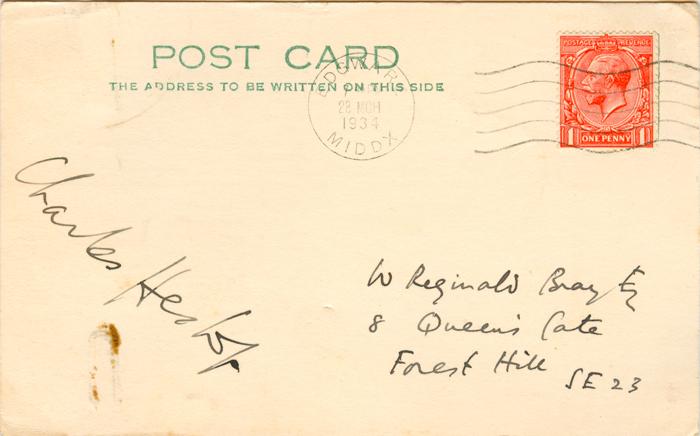 POST CARD
THE ADDRESS TO BE WRITTEN ON THIS SIDE
EDGWARE
28 MCH
1934
MIDDX
POSTAGE REVENUE
1 ONE PENNY 1
Charles Heslop
W Reginald Bray Esq
8 Queen's Gate
Forest Hill SE 23